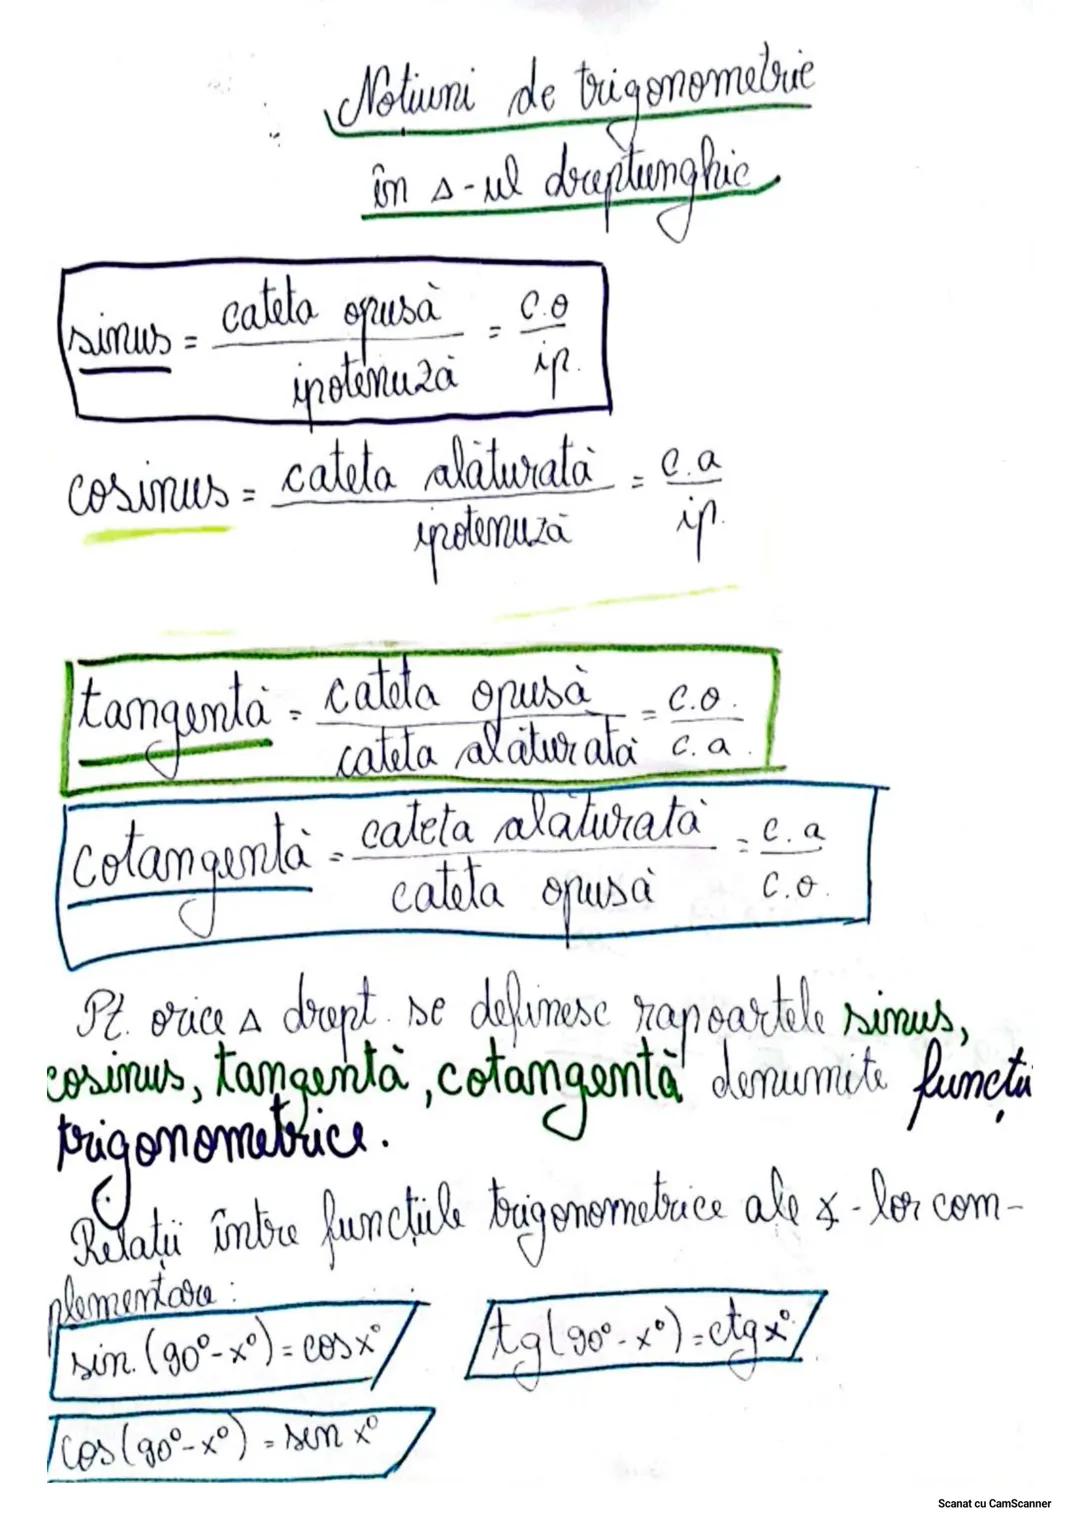 Noțiuni de trigonometrie
în Δ-ul dreptunghic
sinus = cateta opusă / ipotenuză = c.o / ip.
cosinus = cateta alăturată / ipotenuză = c.a / ip.
tangentă = cateta opusă / cateta alăturată = c.o. / c.a.
cotangentă = cateta alăturată / cateta opusă = c.a / c.o.
Pt. orice Δ drept. se definesc rapoartele sinus,
cosinus, tangentă, cotangentă denumite funcții
trigonometrice.
Relații între funcțiile trigonometrice ale ∡-lor com-
plementare:
sin. (90°-x°) = cos x°
tg(90°-x°) = ctg x°
cos(90°-x°) = sin x°
Scanat cu CamScanner